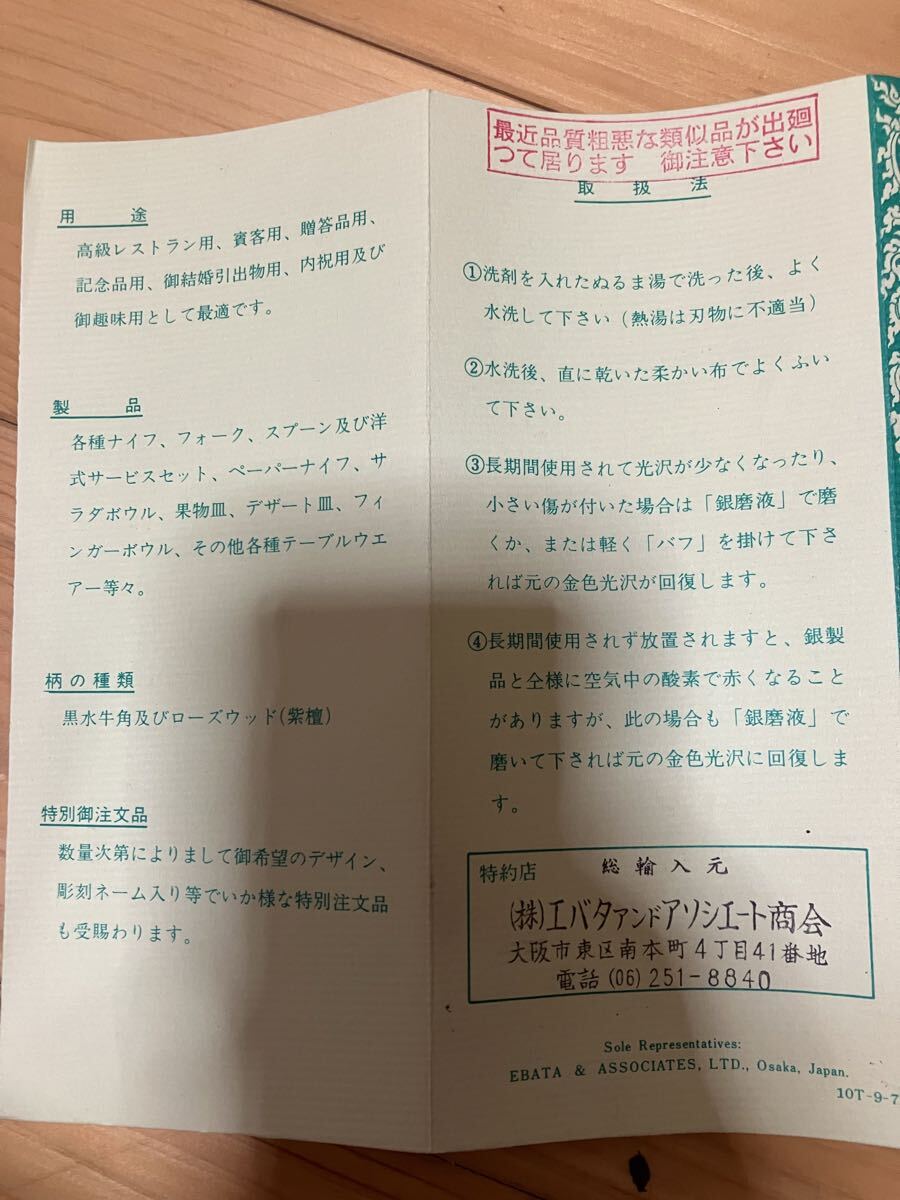 用途
高級レストラン用、賓客用、贈答品用、
記念品用、御結婚引出物用、内祝用及び
御趣味用として最適です。
製品
各種ナイフ、フォーク、スプーン及び洋
式サービスセット、ペーパーナイフ、サ
ラダボウル、果物皿、デザート皿、フィ
ンガーボウル、その他各種テーブルウエ
アー等々。
柄の種類
黒水牛角及びローズウッド(紫檀)
特別御注文品
数量次第によりまして御希望のデザイン、
彫刻ネーム入り等でいか様な特別注文品
も受賜わります。
最近品質粗悪な類似品が出廻
つて居ります 御注意下さい
取扱法
①洗剤を入れたぬるま湯で洗った後、よく
水洗して下さい(熱湯は刃物に不適当)
②水洗後、直に乾いた柔かい布でよくふい
て下さい。
③長期間使用されて光沢が少なくなったり、
小さい傷が付いた場合は「銀磨液」で磨
くか、または軽く「バフ」を掛けて下さ
れば元の金色光沢が回復します。
④長期間使用されず放置されますと、銀製
品と仝様に空気中の酸素で赤くなること
がありますが、此の場合も「銀磨液」で
磨いて下されば元の金色光沢に回復しま
す。
特約店 総輸入元
(株)エバタアンドアソシエート商会
大阪市東区南本町4丁目41番地
電話(06)251-8840
Sole Representatives:
EBATA & ASSOCIATES, LTD., Osaka, Japan.
10T-9-7